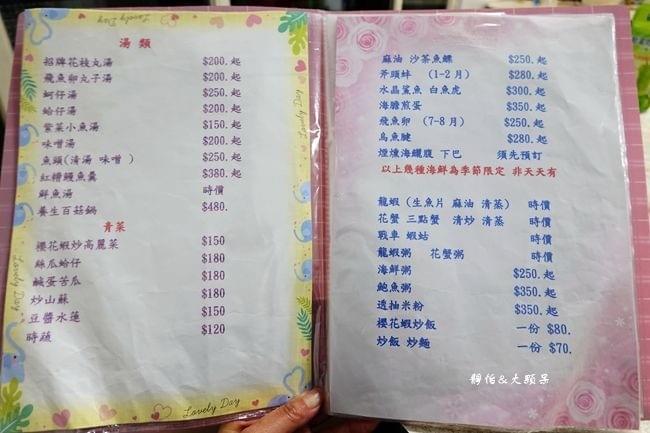 Lovely Day
湯 類
招牌花枝丸湯 $200.起
飛魚卵丸子湯 $200.起
蚵仔湯 $250.起
蛤仔湯 $200.起
紫菜小魚湯 $150.起
味噌湯 $200.起
魚頭(清湯 味噌 ) $250.起
紅糟鰻魚羹 $380.起
鮮魚湯 時價
養生百菇鍋 $480.
青菜
櫻花蝦炒高麗菜 $150
絲瓜蛤仔 $180
鹹蛋苦瓜 $180
炒山蘇 $180
豆醬水蓮 $150
時蔬 $120
Lovely Day
Lovely Day
Lovely Day
麻油 沙茶魚鰾 $250.起
斧頭蚌 (1-2月) $280.起
水晶鯊魚 白魚虎 $300.起
海膽煎蛋 $350.起
飛魚卵 (7-8月) $250.起
烏魚腱 $280.起
煙燻海鱺腹 下巴 須先預訂
以上幾種海鮮為季節限定 非天天有
龍蝦 (生魚片 麻油 清蒸) 時價
花蟹 三點蟹 清炒 清蒸 時價
戰車 蝦蛄 時價
龍蝦粥 花蟹粥 時價
海鮮粥 $250.起
鮑魚粥 $350.起
透抽米粉 $350.起
櫻花蝦炒飯 一份 $80.
炒飯 炒麵 一份 $70.
&大顆呆